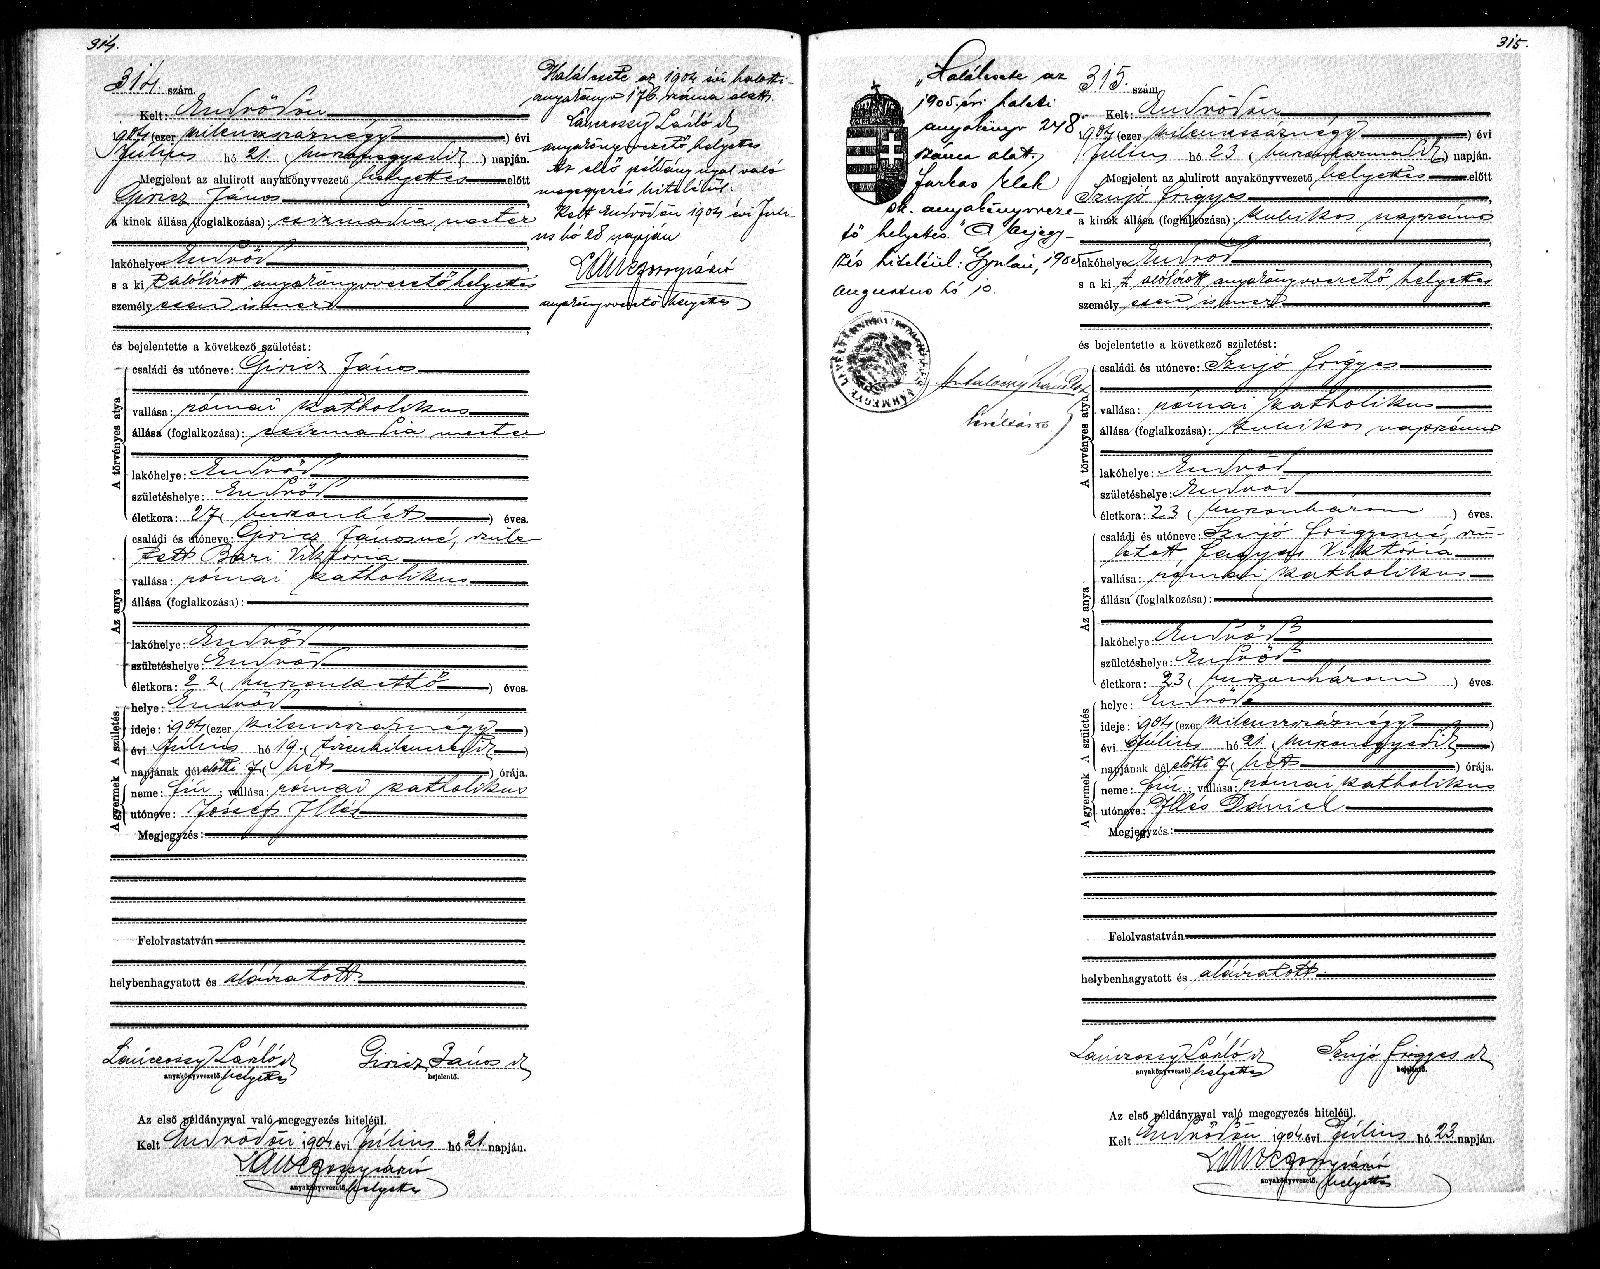 314.
314. szám.
Kelt: Endrődön
1904 (ezer kilencszáznégy) évi
Július hó 21 (huszonegyedik) napján.
Megjelent az alulirott anyakönyvvezető helyettes előtt
Giricz János
a kinek állása (foglalkozása): csizmadia mester
lakóhelye Endrőd
s a ki t alólírott anyakönyvvezető helyettes
személyesen ismer
és bejelentette a következő születést:
A törvényes atya
családi és utóneve: Giricz János
vallása: római katholikus
állása (foglalkozása): csizmadia mester
lakóhelye: Endrőd
születéshelye: Endrőd
életkora: 27 (huszonhét) éves.
Az anya
családi és utóneve: Giricz Jánosné, szüle-
tett Bari Viktória
vallása: római katholikus
állása (foglalkozása):
lakóhelye: Endrőd
születéshelye: Endrőd
életkora: 22 (huszonkettő) éves.
A születés
helye: Endrőd
ideje: 1904 (ezer kilenczszáznégy)
évi Július hó 19. (tizenkilenczedik)
napjának délelőtti 7 (hét) órája.
A gyermek
neme: fiú; vallása: római katholikus
utóneve: József Illés
Megjegyzés:
Felolvastatván
helybenhagyatott és aláiratott.
Lánczossy László sk
anyakönyvvezető helyettes
Giricz János sk
bejelentő.
Az első példánynyal való megegyezés hiteléül.
Kelt Endrődön 1904 évi Július hó 21. napján.
anyakönyvvezető. helyettes
Halálesete az 1904 évi halotti
anyakönyv 176. száma alatt.
Lánczossy László sk
anyakönyvvezető helyettes
Az első példánynyal való
megegyezés hiteléül.
Kelt Endrődön 1904 évi Juli-
us hó 28 napján
anyakönyvvezető helyettes
315.
„Halálesete az
1905. évi haloti
anyakönyv 248
száma alatt.
Farkas Elek
sk. anyakönyvveze-
tő helyettes." A bejegy-
zés hiteléül: Gyulán, 1905
augusztus hó 10.
levéltáros
315. szám.
Kelt: Endrődön
1904 (ezer kilencszáznégy) évi
Július hó 23 (huszonharmadik) napján.
Megjelent az alulirott anyakönyvvezető helyettes előtt
Szujó Frigyes
a kinek állása (foglalkozása): kubikos napszámos
lakóhelye Endrőd
s a ki t alólírott anyakönyvvezető helyettes
személyesen ismer
és bejelentette a következő születést:
A törvényes atya
családi és utóneve: Szujó Frigyes
vallása: római katholikus
állása (foglalkozása): kubikos napszámos
lakóhelye: Endrőd
születéshelye: Endrőd
életkora: 23 (huszonhárom) éves.
Az anya
családi és utóneve: Szujó Frigyesné, szü-
letett Viktória
vallása: római katholikus
állása (foglalkozása):
lakóhelye: Endrőd
születéshelye: Endrőd
életkora: 23 (huszonhárom) éves.
A születés
helye: Endrőd
ideje: 1904 (ezer kilencszáznégy)
évi Július hó 21. (huszonegyedik)
napjának délelőtti 7 (hét) órája.
A gyermek
neme: fiú; vallása: római katholikus
utóneve: Illés Dániel
Megjegyzés:
Felolvastatván
helybenhagyatott és aláiratott.
Lánczossy László sk
anyakönyvvezető helyettes
Szujó Frigyes sk
bejelentő.
Az első példánynyal való megegyezés hiteléül.
Kelt Endrődön 1904 évi Július hó 23 napján.
anyakönyvvezető. helyettes